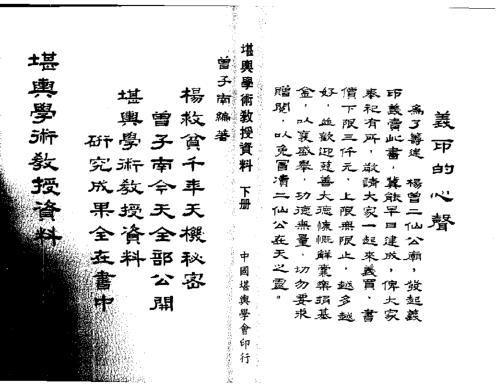 義印的心聲
為了籌建 楊曾二仙公廟，發起義
印義賣此書，冀能早日建成，俾大家
奉祀有所，敬請大家一起來義買，書
價下限三仟元，上限無限止，越多越
好，並歡迎慈善大德慷慨解囊樂捐基
金，以襄盛舉，功德無量，切勿要求
贈閱，以免冒瀆二仙公在天之靈。
堪輿學術教授資料 下册
中國堪輿學會印行
曾子南編著
楊救貧千年天機秘密
曾子南今天全部公開
堪輿學術教授資料
研究成果全在書中
堪輿學術教授資料